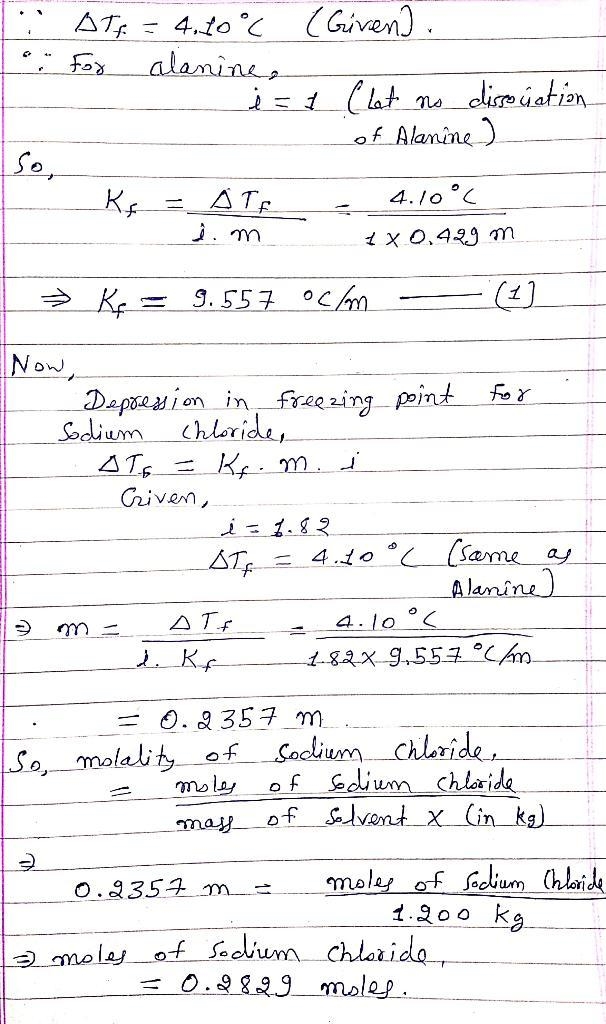 ∵ ΔTf = 4.10°C (Given).
∵ For alanine,
i = 1 (Let no dissociation
of Alanine)
So,
Kf = ΔTf / i. m = 4.10°C / 1 x 0.429 m
⇒ Kf = 9.557 °C/m —— (1)
Now,
Depression in freezing point for
Sodium Chloride,
ΔTf = Kf. m. i
Given,
i = 1.82
ΔTf = 4.10°C (Same as
Alanine)
⇒ m = ΔTf / i. Kf = 4.10°C / 1.82 x 9.557 °C/m
= 0.2357 m
So, molality of Sodium Chloride,
= moles of Sodium Chloride
mass of Solvent X (in kg)
⇒
0.2357 m = moles of Sodium Chloride
1.200 kg
⇒ moles of Sodium Chloride,
= 0.2829 moles.